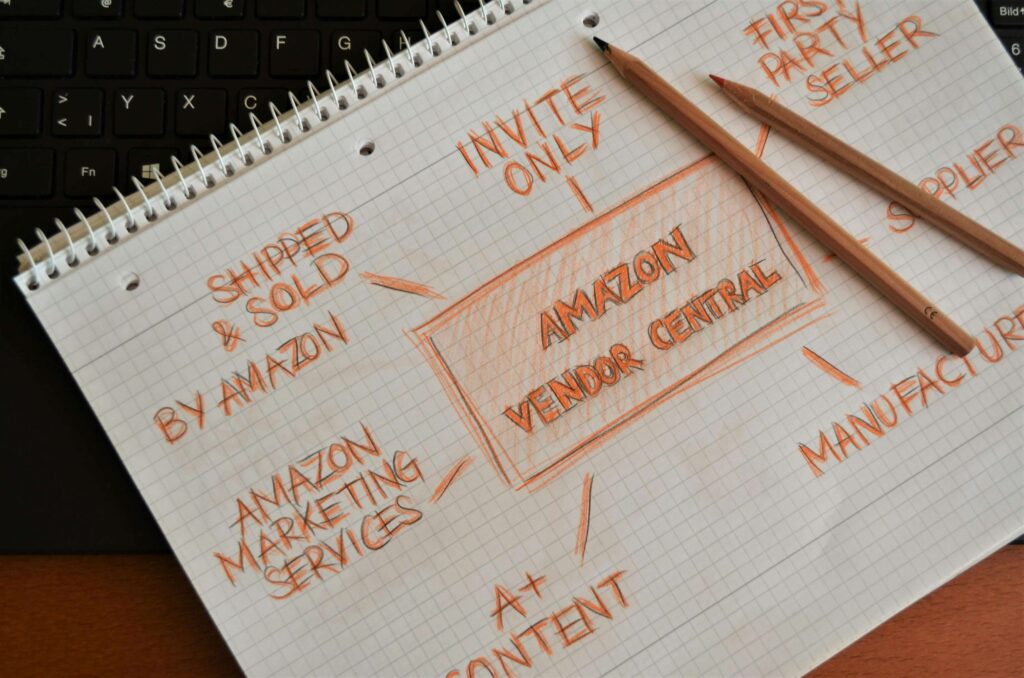 A S D F G H
> < | Y X C
Fn
Bild
6
INVITE
ONLY
FIRST
PARTY
SELLER
SUPPLIER
SHIPPED
& SOLD
BY AMAZON
AMAZON
VENDOR CENTRAL
MANUFACTURE
AMAZON
MARKETING
SERVICES
A+
CONTENT
CE